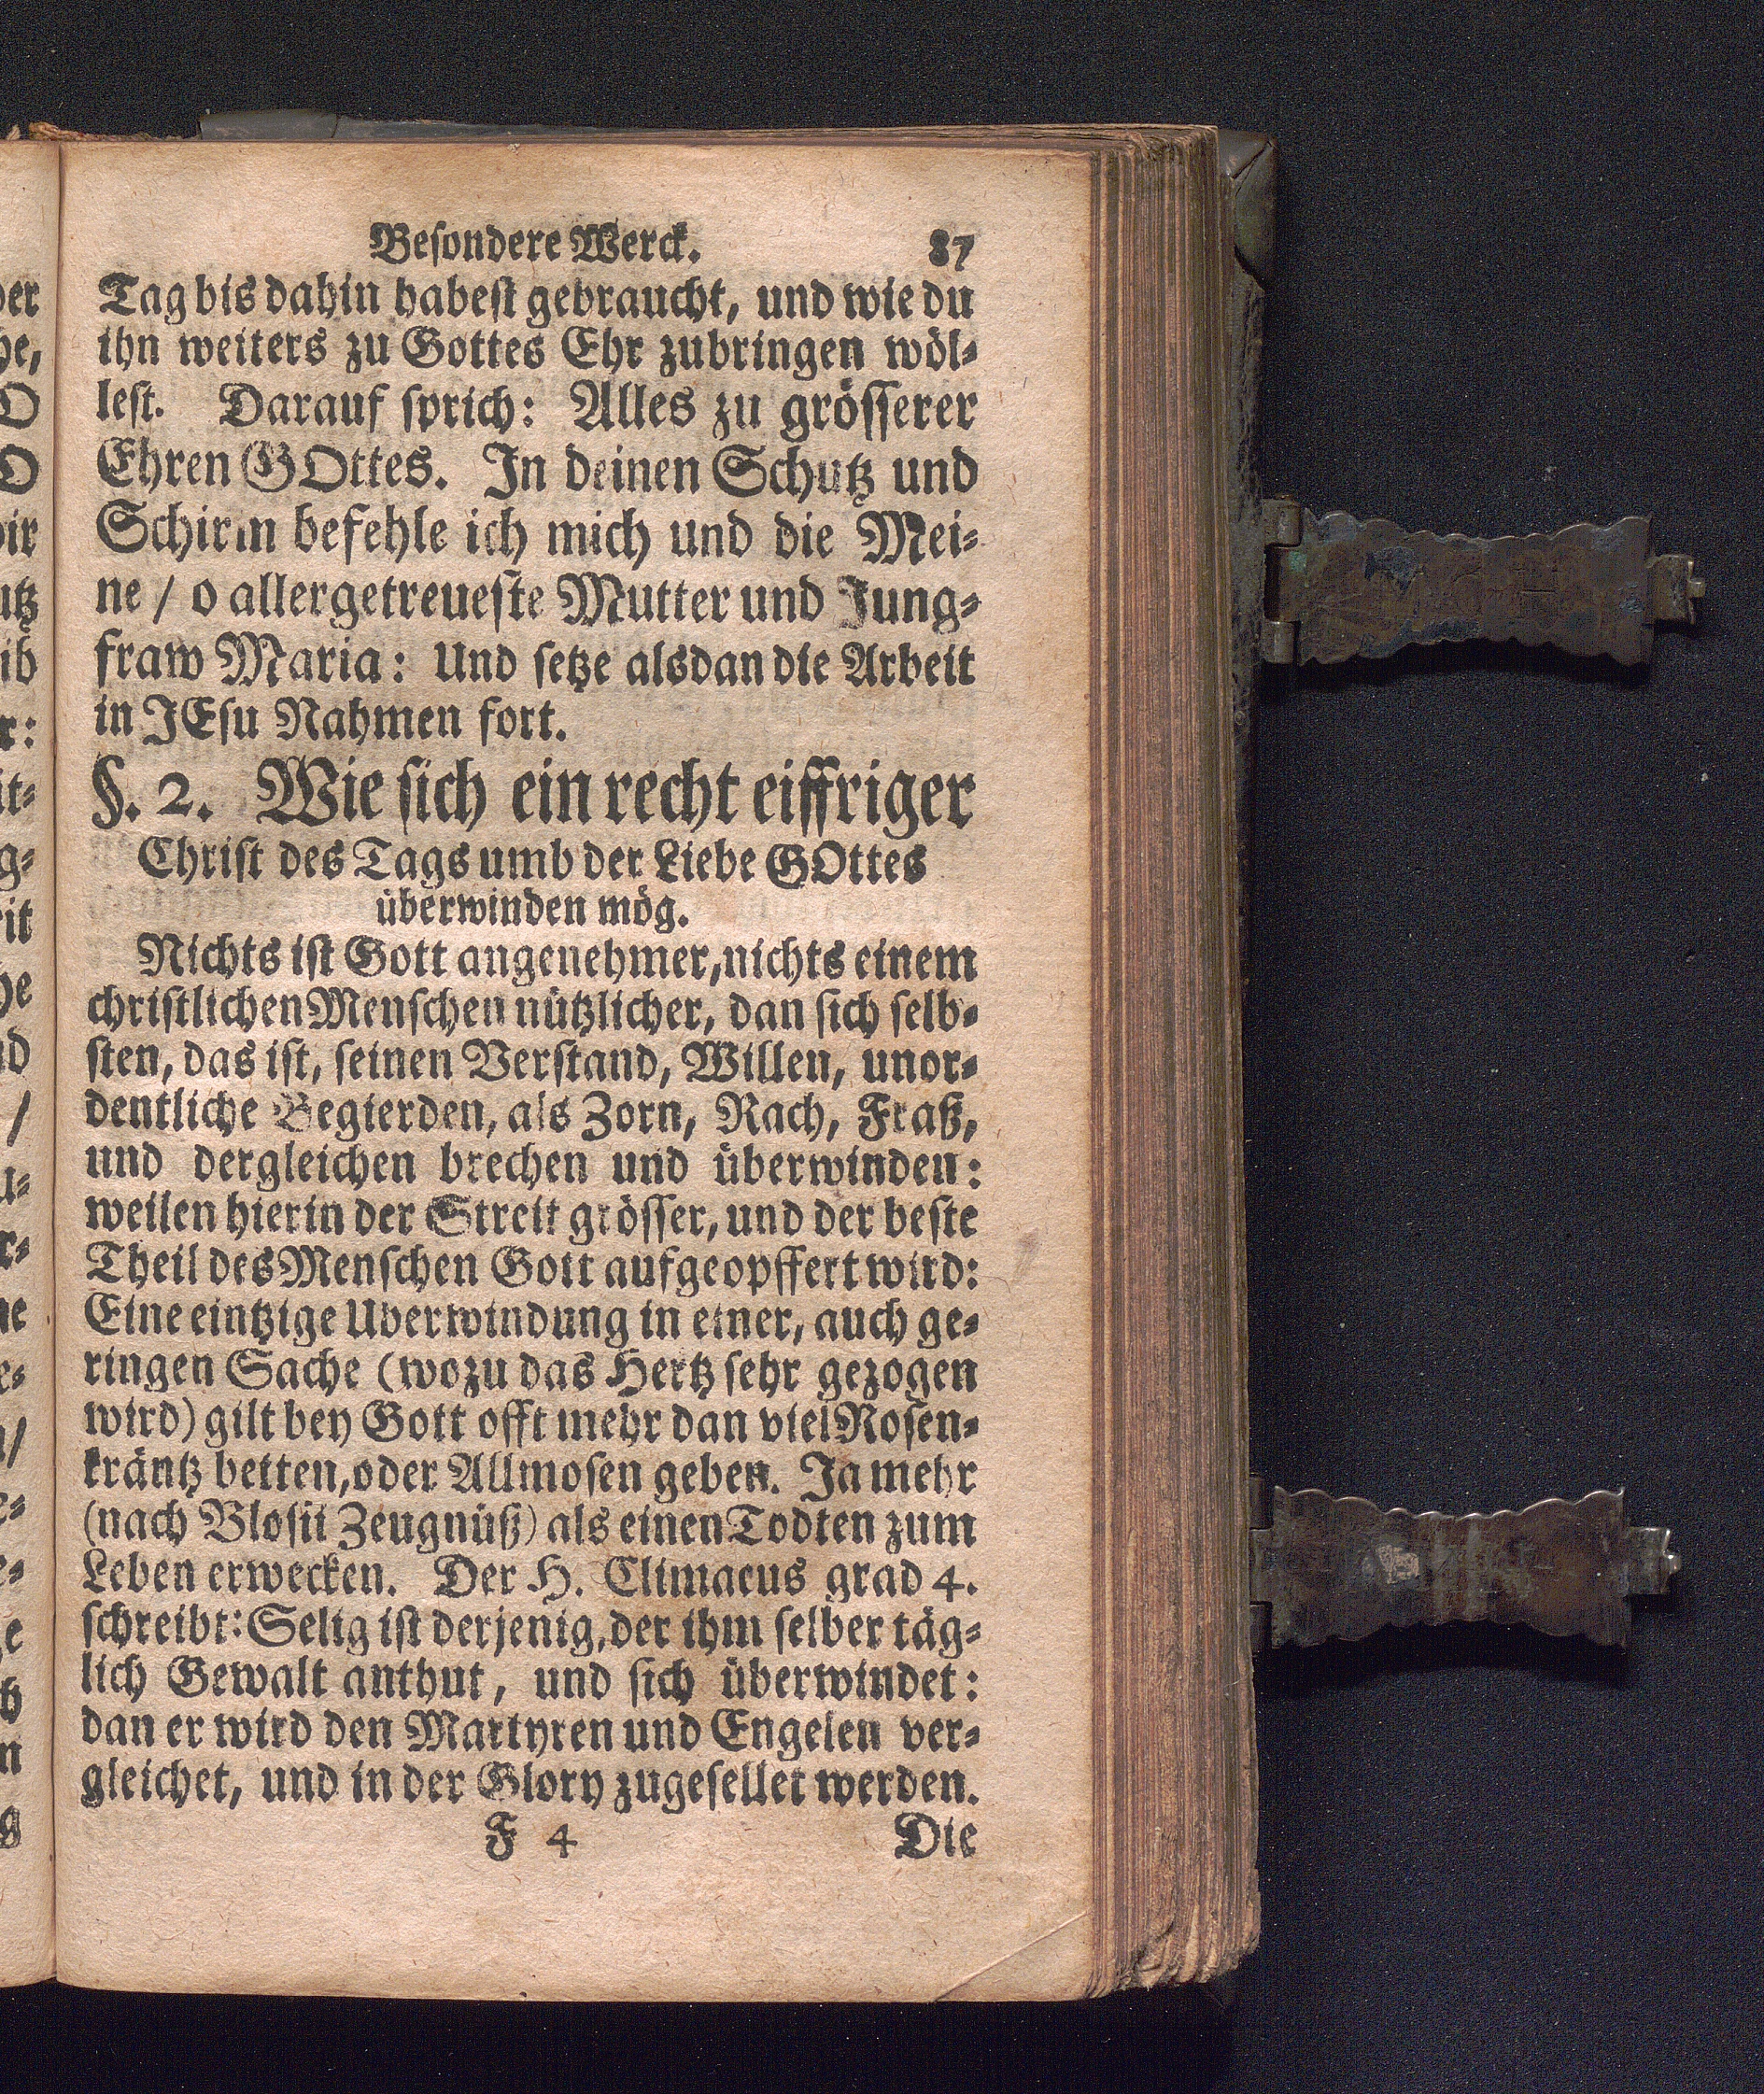 Besondere Werck. 87
Tag bis dahin habest gebraucht, und wie du
ihn weiters zu Gottes Ehr zubringen wöl-
lest. Darauf sprich: Alles zu grösserer
Ehren GOttes. In deinen Schutz und
Schirm befehle ich mich und die Mei-
ne / o allergetreueste Mutter und Jung-
fraw Maria: Und setze alsdan die Arbeit
in JEsu Nahmen fort.
§. 2. Wie sich ein recht eiffriger
Christ des Tags umb der Liebe GOttes
überwinden mög.
Nichts ist Gott angenehmer, nichts einem
christlichen Menschen nützlicher, dan sich selb-
sten, das ist, seinen Verstand, Willen, unor-
dentliche Begierden, als Zorn, Rach, Fraß,
und dergleichen brechen und überwinden:
weilen hierin der Streit grösser, und der beste
Theil des Menschen Gott aufgeopffert wird:
Eine eintzige Uberwindung in einer, auch ge-
ringen Sache (wozu das Hertz sehr gezogen
wird) gilt bey Gott offt mehr dan viel Rosen-
kräntz betten, oder Allmosen geben. Ja mehr
(nach Blosii Zeugnüß) als einen Todten zum
Leben erwecken. Der H. Climacus grad 4.
schreibt: Selig ist derjenig, der ihm selber täg-
lich Gewalt anthut, und sich überwindet:
dan er wird den Martyren und Engelen ver-
gleichet, und in der Glory zugesellet werden.
F 4 Die